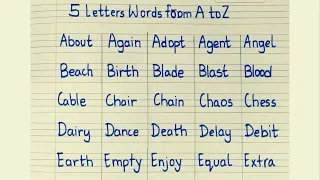 5 Letters Words from A to Z
About Again Adopt Agent Angel
Beach Birth Blade Blast Blood
Cable Chair Chain Chaos Chess
Dairy Dance Death Delay Debit
Earth Empty Enjoy Equal Extra